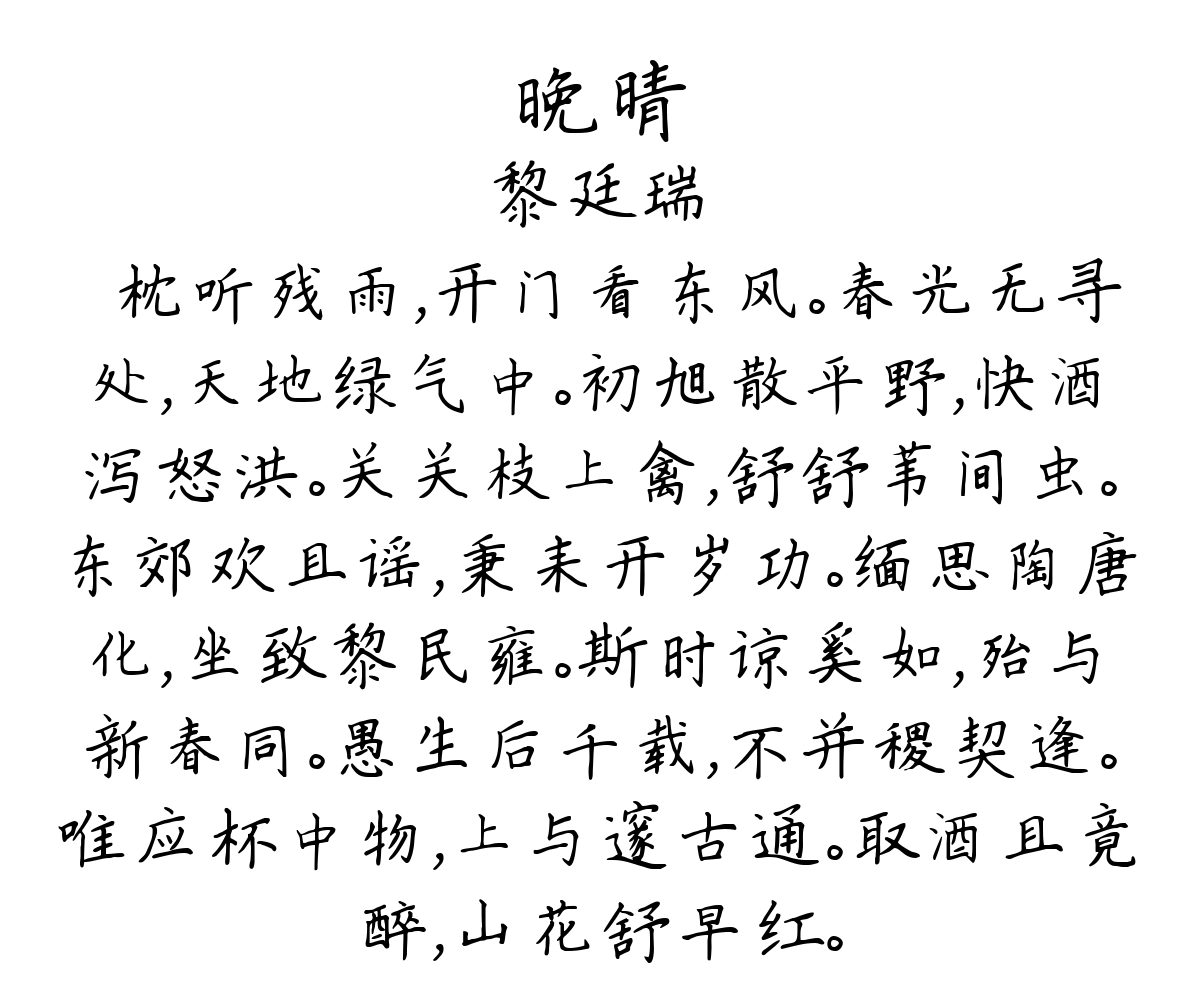 晚晴
黎廷瑞
枕听残雨,开门看东风。春光无寻
处,天地绿气中。初旭散平野,快洒
泻怒洪。关关枝上禽,舒舒苇间虫。
东郊欢且谣,秉耒开岁功。缅思陶唐
化,坐致黎民雍。斯时谅奚如,殆与
新春同。愚生后千载,不并稷契逢。
唯应杯中物,上与邃古通。取酒且竟
醉,山花舒早红。